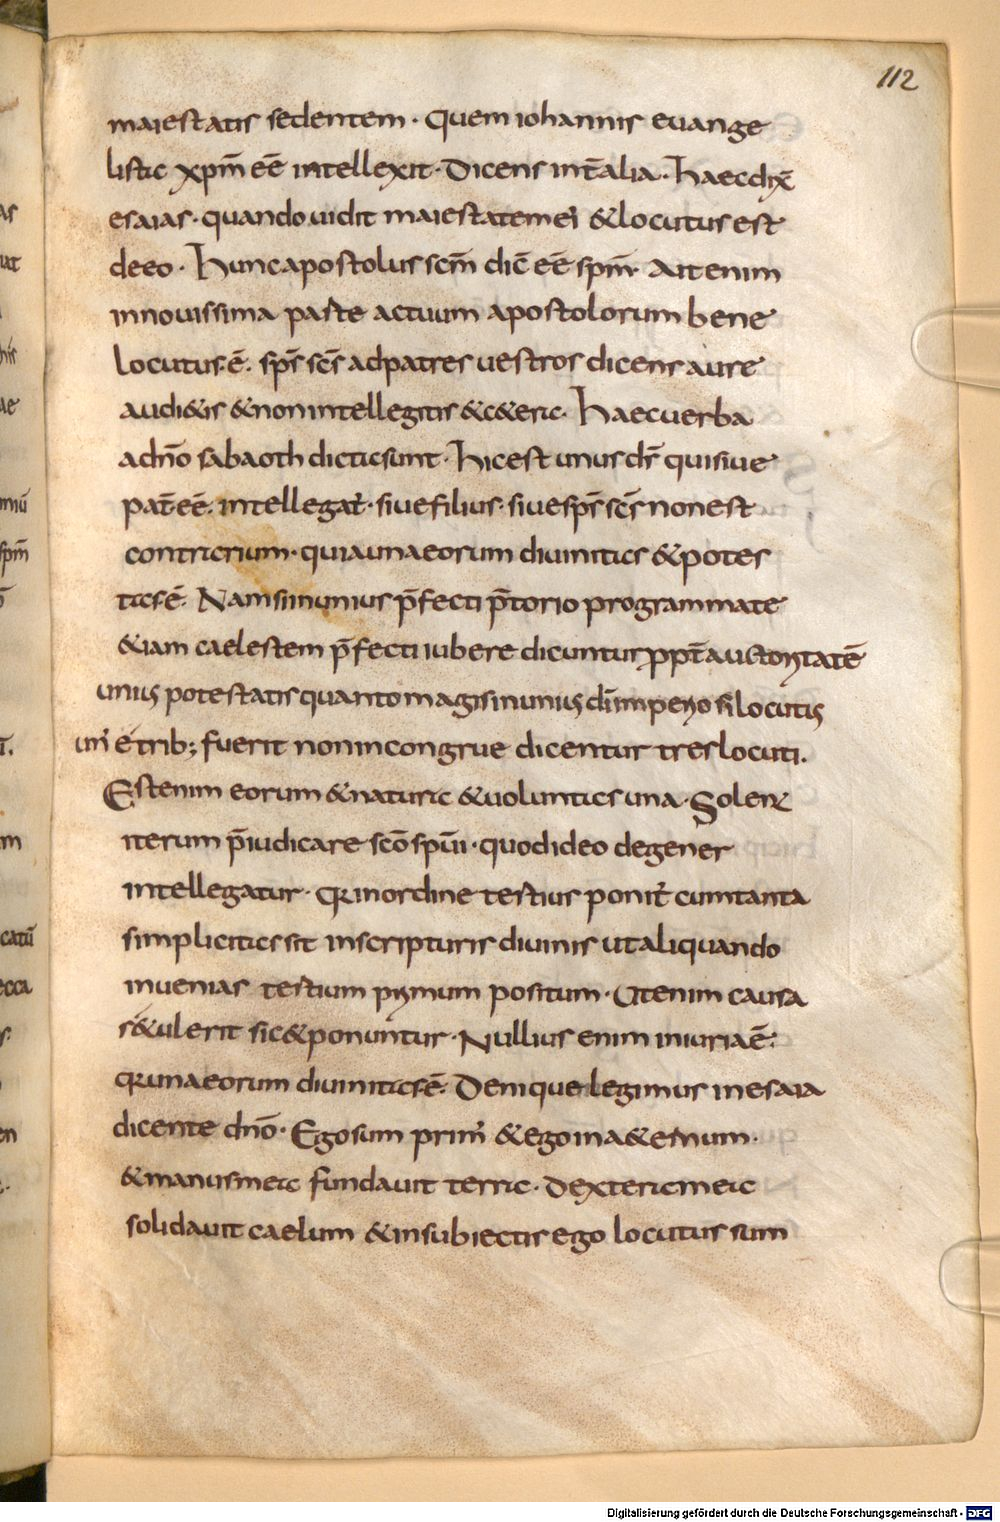 112
maiestatis sedentem · Quem iohannis euange
lista xpm̄ eē intellexit · Dicens int̄ alia · Haec dix̄
esaias · quando uidit maiestatem ei' & locutus est
de eo · Hunc apostolus scm̄ dic̄ eē spm̄ · Ait enim
in nouissima parte actuum apostolorum bene
locutus ē · sps̄ scs̄ ad patres uestros dicens aure
audi&is & non intellegitis & c&era · Haec uerba
a dn̄o sabaoth dicta sunt · Hic est unus ds̄ qui siue
pat̄ eē · intellegat̄ · siue filius · siue sps̄ scs̄ non est
contrarium · quia una eorum diuinitas & potes
tas ē · Nam si in unius p̄fecti p̄torio programmate
&iam caelestem p̄fecti iubere dicuntur ppt̄ auctoritatē
unius potestatis quanto magis in unius dī imperio si locutis
un' e trib; fuerit non incongrue dicentur tres locuti.
Est enim eorum & natura & uoluntas una · Solent
iterum p̄iudicare sc̄o spūi · quod ideo degener
intellegatur · qr in ordine tertius ponit̄ cum tanta
simplicitas sit in scripturis diuinis ut aliquando
inuenias tertium primum positum · Utenim causa
s& ulerit sic & ponuntur · Nullius enim iniuria ē ·
qr una eorum diuinitas ē · Denique legimus in esaia
dicente dn̄o · Ego sum prim' & ego in a&ernum ·
& manus mea fundauit terra · dextera mea
solidauit caelum & in subiectis ego locutus sum
Digitalisierung gefördert durch die Deutsche Forschungsgemeinschaft - DFG